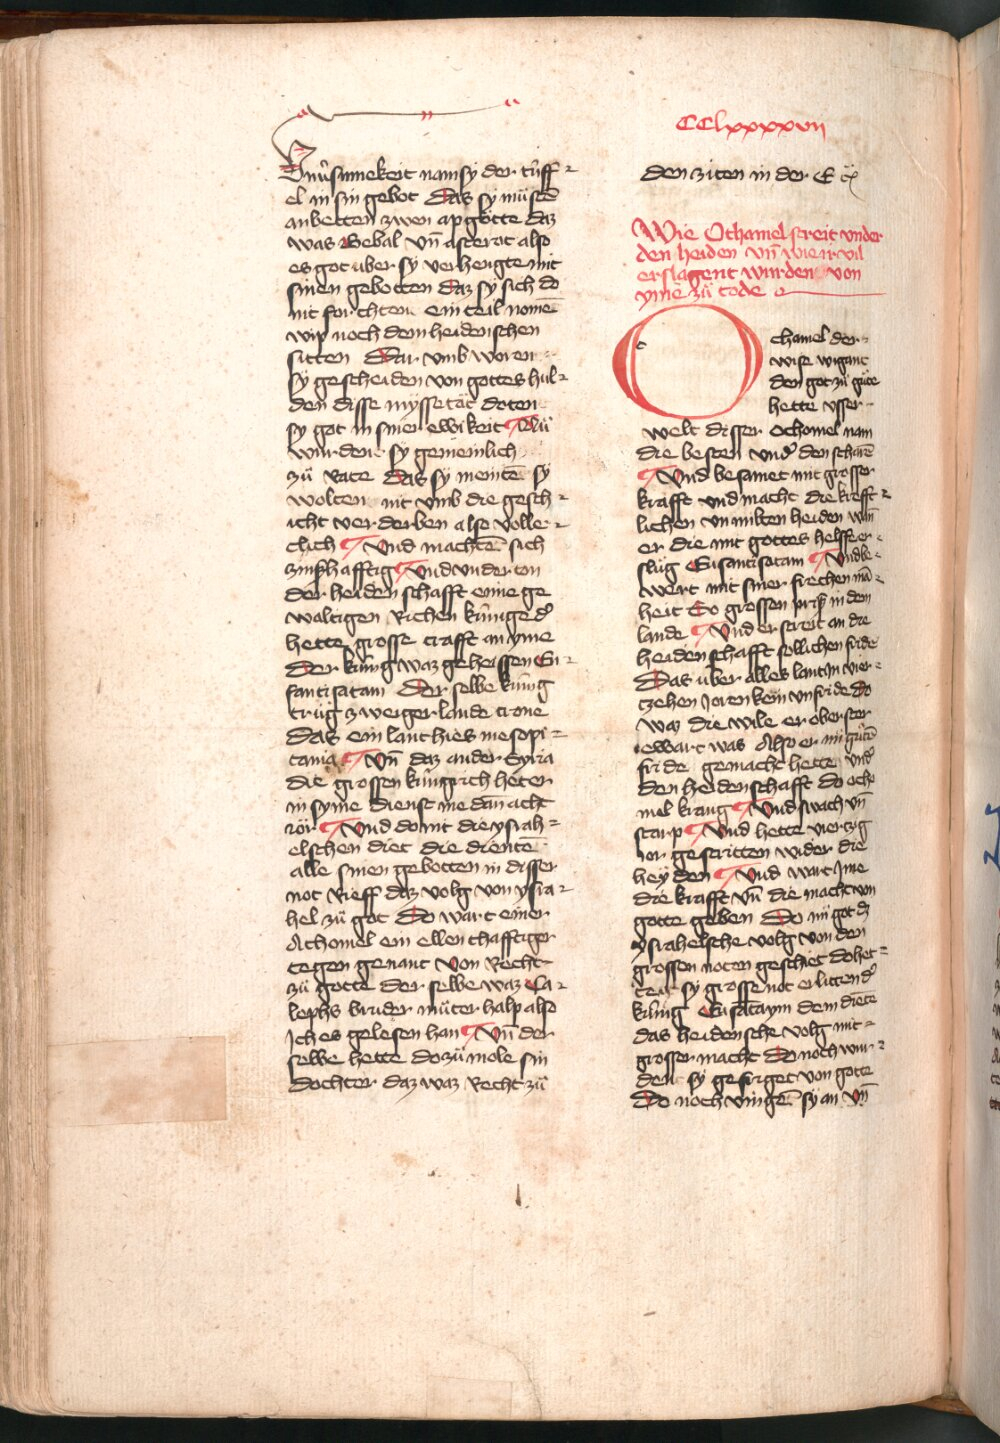 CClxxxxvii
Vnsinnekeit nam sy der tüff-
el in sin gebot Das sy müsten
anbetten zwen apgötte daz
was Bebal vn̄ asterot also
es got uber sy verhengte mit
sinen gebotten daz sy sich do
nit forchten ein teil nomen
wip noch dem heidenschen
sitten Dar vmb woren
sy gescheiden von gottes hul-
den disse myssetät doten
sy got in siner ewikeit Nu
wurden sy gemeinlich
zü rate das sy meintē sy
wolten nit vmb die gesch-
icht verderben also volle-
clich Vnd machtē sich
zinshafftig Vnd vnderton
der heidenschafft eime ge
waltigen Richen künige d'
hette grosse craft an yme
Der künig waz geheissen Gu-
santisatam Der selbe künig
trüg zweiger lande crone
Das ein lant hies mesopo-
tania Vn̄ daz ander Syria
die grossen künigrich heten
in syme dienst me dan acht
ior Vnd domit die ysrah-
elschen diet die dientē
alle sinen gebotten in disser
not Rieff daz volg von ysra-
hel zü got Do wart einer
Athomel ein ellenthafftiger
tegen genant Von Recht
zü gotte der selbe waz Ca-
lephs bruder müter halp also
Ich es gelesen han Vn̄ der
selbe hette do zü mole sin
dochter daz waz Recht zü
den ziten in der E
Wie Othamel streit vnder
den heiden vn̄ wie ir vil
erslagent wurden von
yme zü tode
Othamel der
wise wigant
den got zü güte
hette vsser
welt disser Othomel nam
die besten vnd' den scharē
Vnd besamet mit grosser
krafft vnd macht die krefft-
lichen vn milten heiden wan
er die mit gottes helffe er-
slüg Gusantisatam Vnd be-
wert mit siner frechen mā-
heit So grossen priß in dem
lande Vnd er streit an die
heidenschafft sollichen fride
Das über alles lant in vier-
zehen Joren kein vnfride do
waz die wile er oberster
ewart was Also er nü güten
fride gemacht hette vnd'
den heidenschafft do otho
mel krang Vnd swach vn̄
starp Vnd hette viertzig
Jor gestritten wider die
heyden Vnd wart Ime
die krafft vn̄ die macht von
gotte geben Do nü got dz
ysrahelsche volg von den
grossen noten geschiet do het-
tent sy grosse not erlitten d'
künig Gusataym dem dientē
das heidensche volg mit
grosser macht Do noch wur-
dent sy gefriget von gotte
Do noch vingē sy an vn̄